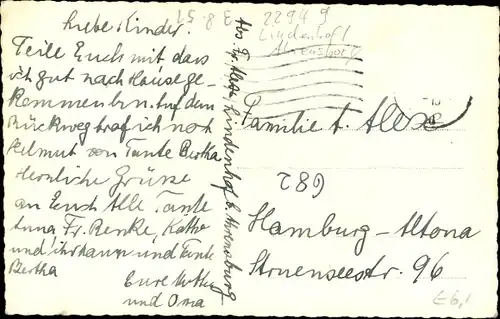 Liebe Kinder.
Teile Euch mit dass
ich gut nach Hause ge
kommen bin. Auf dem
Rückweg traf ich noch
Helmut von Tante Bertha
Herzliche Grüsse
an Euch Alle Tante
Anna, Fr. Renke, Käthe
und ihr Mann und Tante
Bertha
Eure Mutter
und Oma
Abs. Fr. Alexe Lindenhof b. Ahrensburg
3.8.51
22949
Lindenhof /
Ahrensburg
Familie A. Alexe
289
Hamburg-Altona
Struenseestr. 96